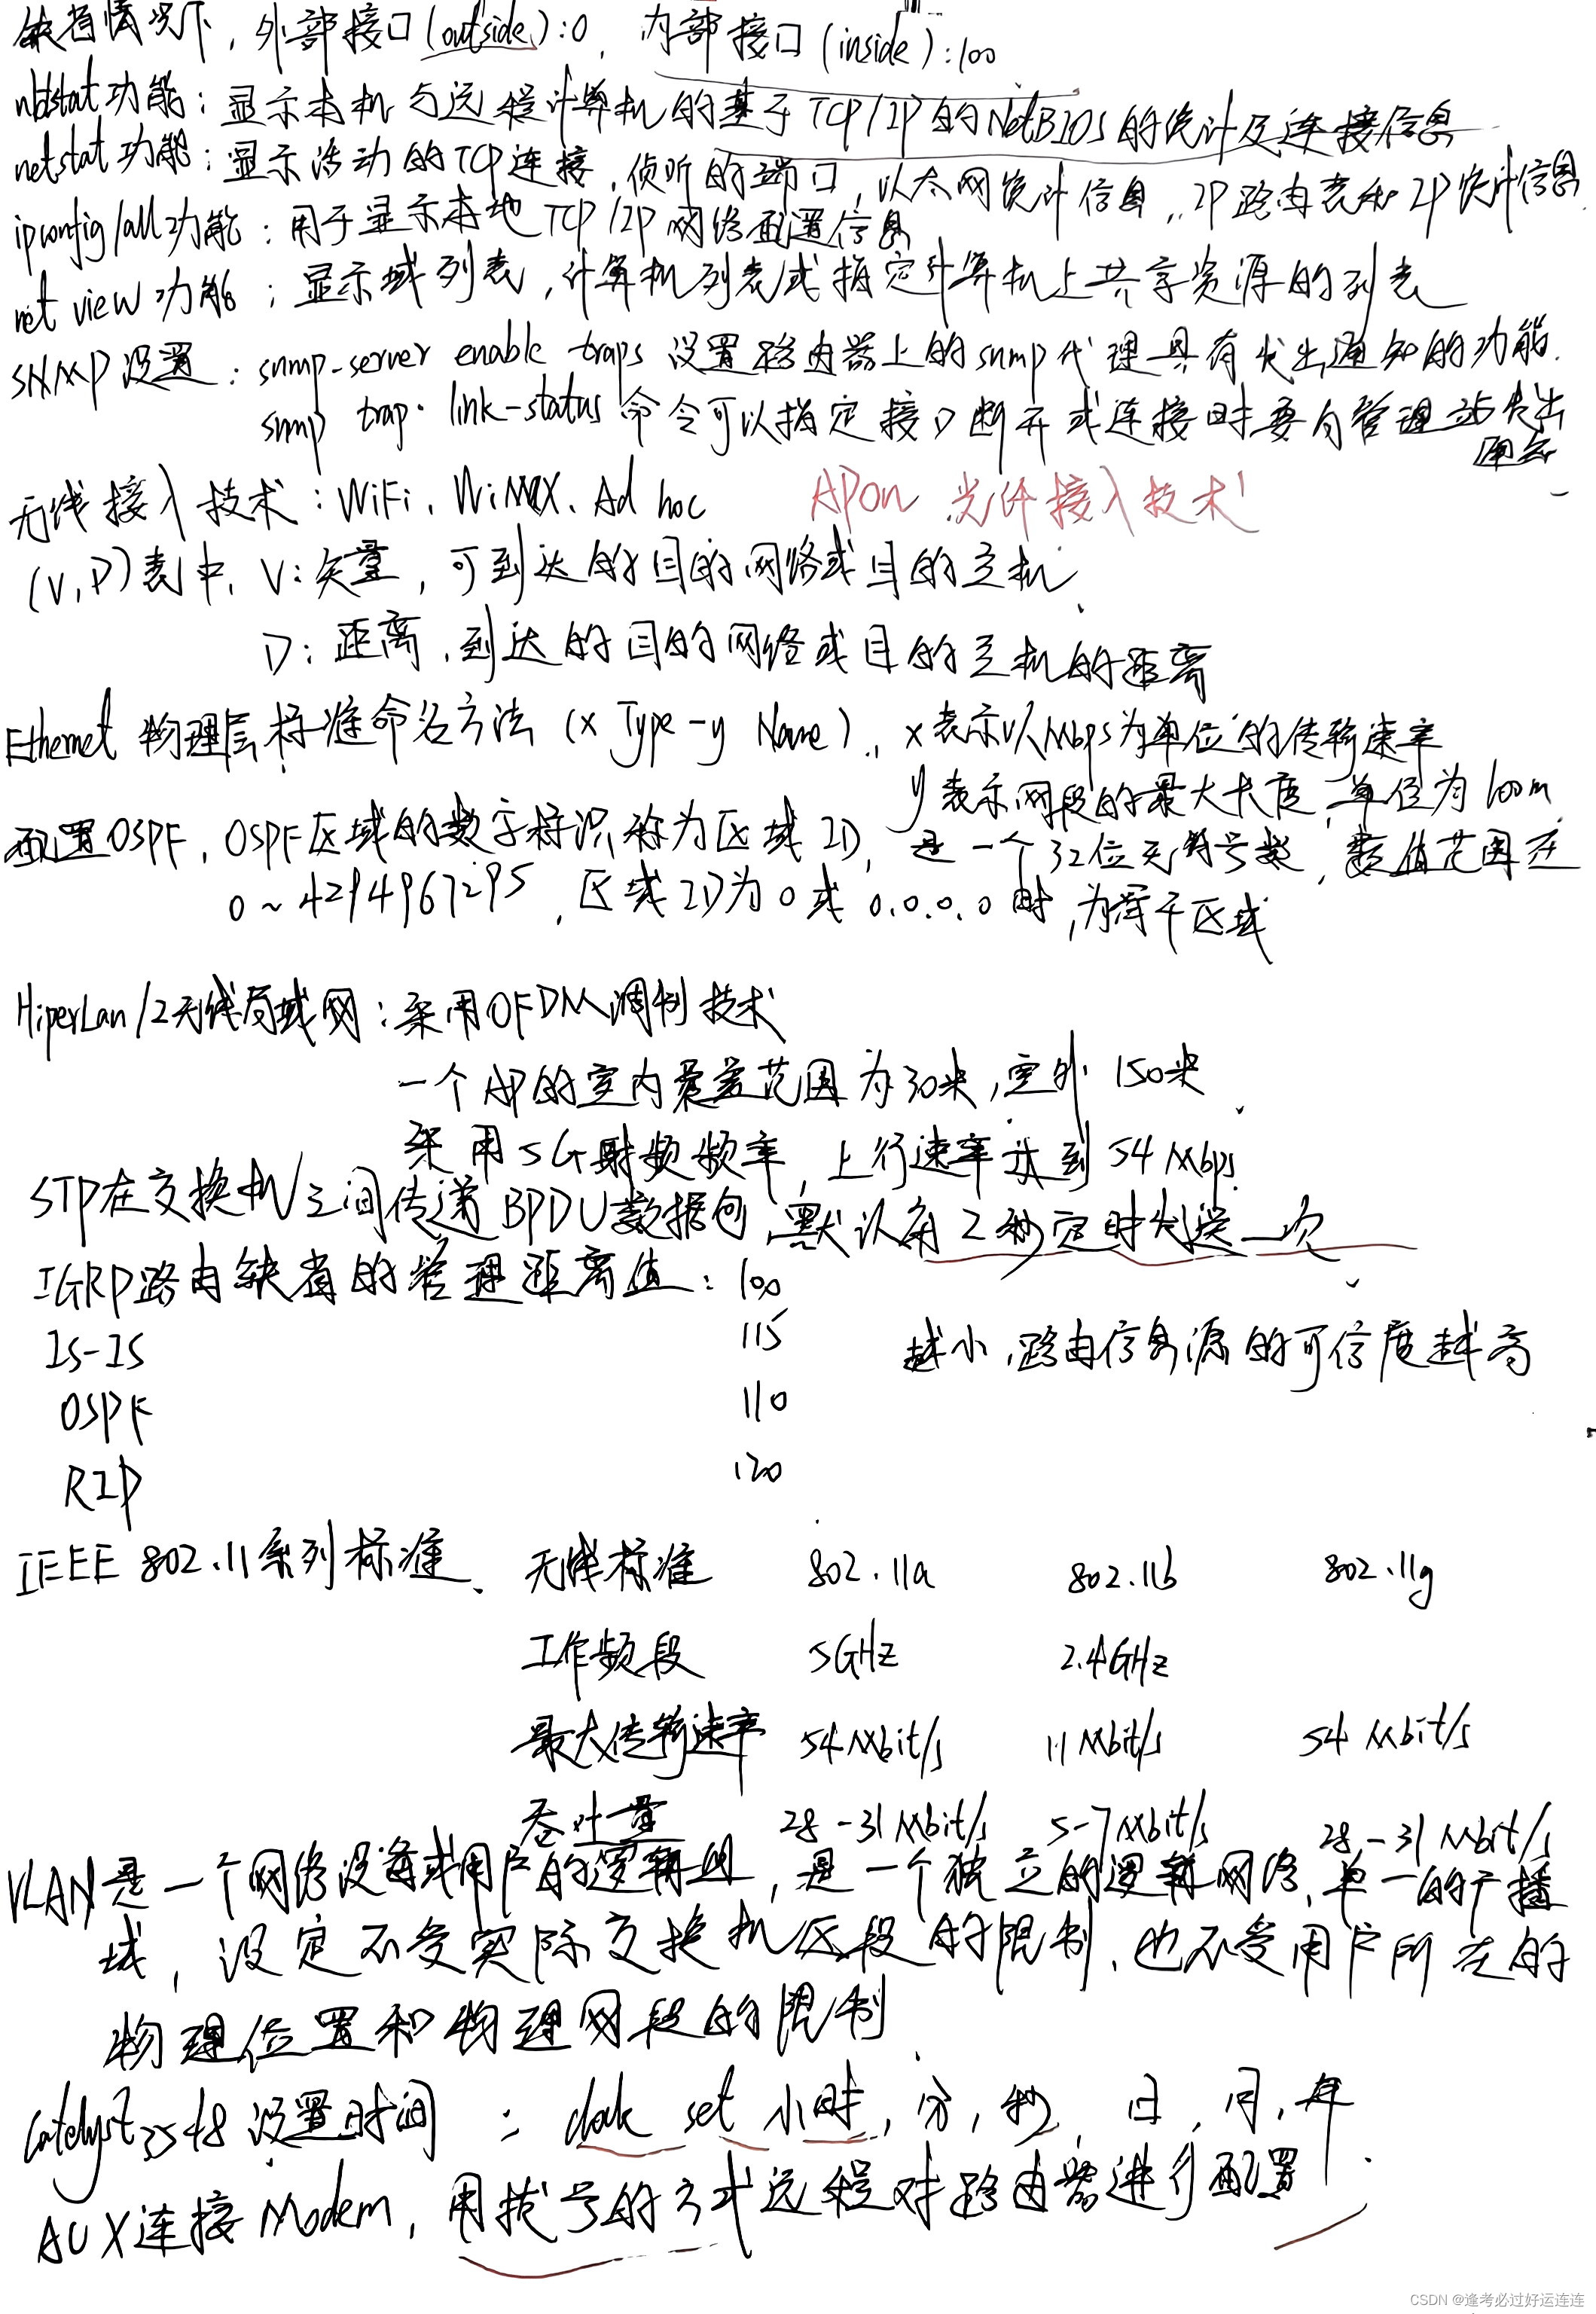 缺省情况下，外部接口(outside):0，内部接口(inside):100
nbtstat功能：显示本机与远程计算机的基于TCP/IP的NetBIOS的统计及连接信息
netstat功能：显示活动的TCP连接，侦听的端口，以太网统计信息，IP路由表和IP统计信息
ipconfig/all功能：用于显示本地TCP/IP网络配置信息
net view功能：显示域列表，计算机列表或指定计算机上共享资源的列表
SNMP设置：snmp-server enable traps 设置路由器上的snmp代理具有发出通知的功能.
snmp trap link-status 命令可以指定接口断开或连接时要向管理站发出
通知
无线接入技术：WiFi、WiMAX、Ad hoc APON 光纤接入技术
(V,D)表中，V:矢量，可到达的目的网络或目的主机
D：距离，到达的目的网络或目的主机的距离
Ethernet 物理层标准命名方法 (x Type-y Name)，x表示以Mbps为单位的传输速率
y表示网段的最大长度，单位为100m
配置OSPF，OSPF区域的数字标识称为区域ID，是一个32位无符号数，数值范围在
0~4294967295，区域ID为0或0.0.0.0时，为骨干区域
HiperLan/2无线局域网：采用OFDM调制技术
一个AP的室内覆盖范围为30米，室外150米
采用5G射频频率，上行速率达到54Mbps
STP在交换机之间传递BPDU数据包，默认每2秒定时发送一次
IGRP路由缺省的管理距离值：100
IS-IS 115 越小，路由信息源的可信度越高
OSPF 110
RIP 120
IEEE 802.11系列标准、 无线标准 802.11a 802.11b 802.11g
工作频段 5GHz 2.4GHz
最大传输速率 54Mbit/s 11Mbit/s 54Mbit/s
吞吐量 28-31Mbit/s 5-7Mbit/s 28-31Mbit/s
VLAN是一个网络设备或用户的逻辑组，是一个独立的逻辑网络，单一的广播
域，设定不受实际交换机区段的限制，也不受用户所在的
物理位置和物理网段的限制
Catalyst3548设置时间：clock set 小时，分，秒，日，月，年
AUX连接Modem，用拨号的方式远程对路由器进行配置
CSDN @逢考必过好运连连